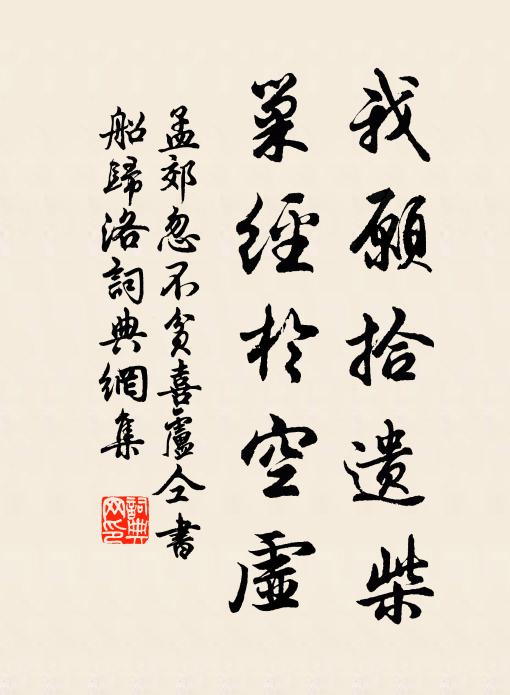 我願拾遺柴
巢經於空虛
孟郊忽不貧喜盧仝書
船歸洛詞典網集
詞典網印